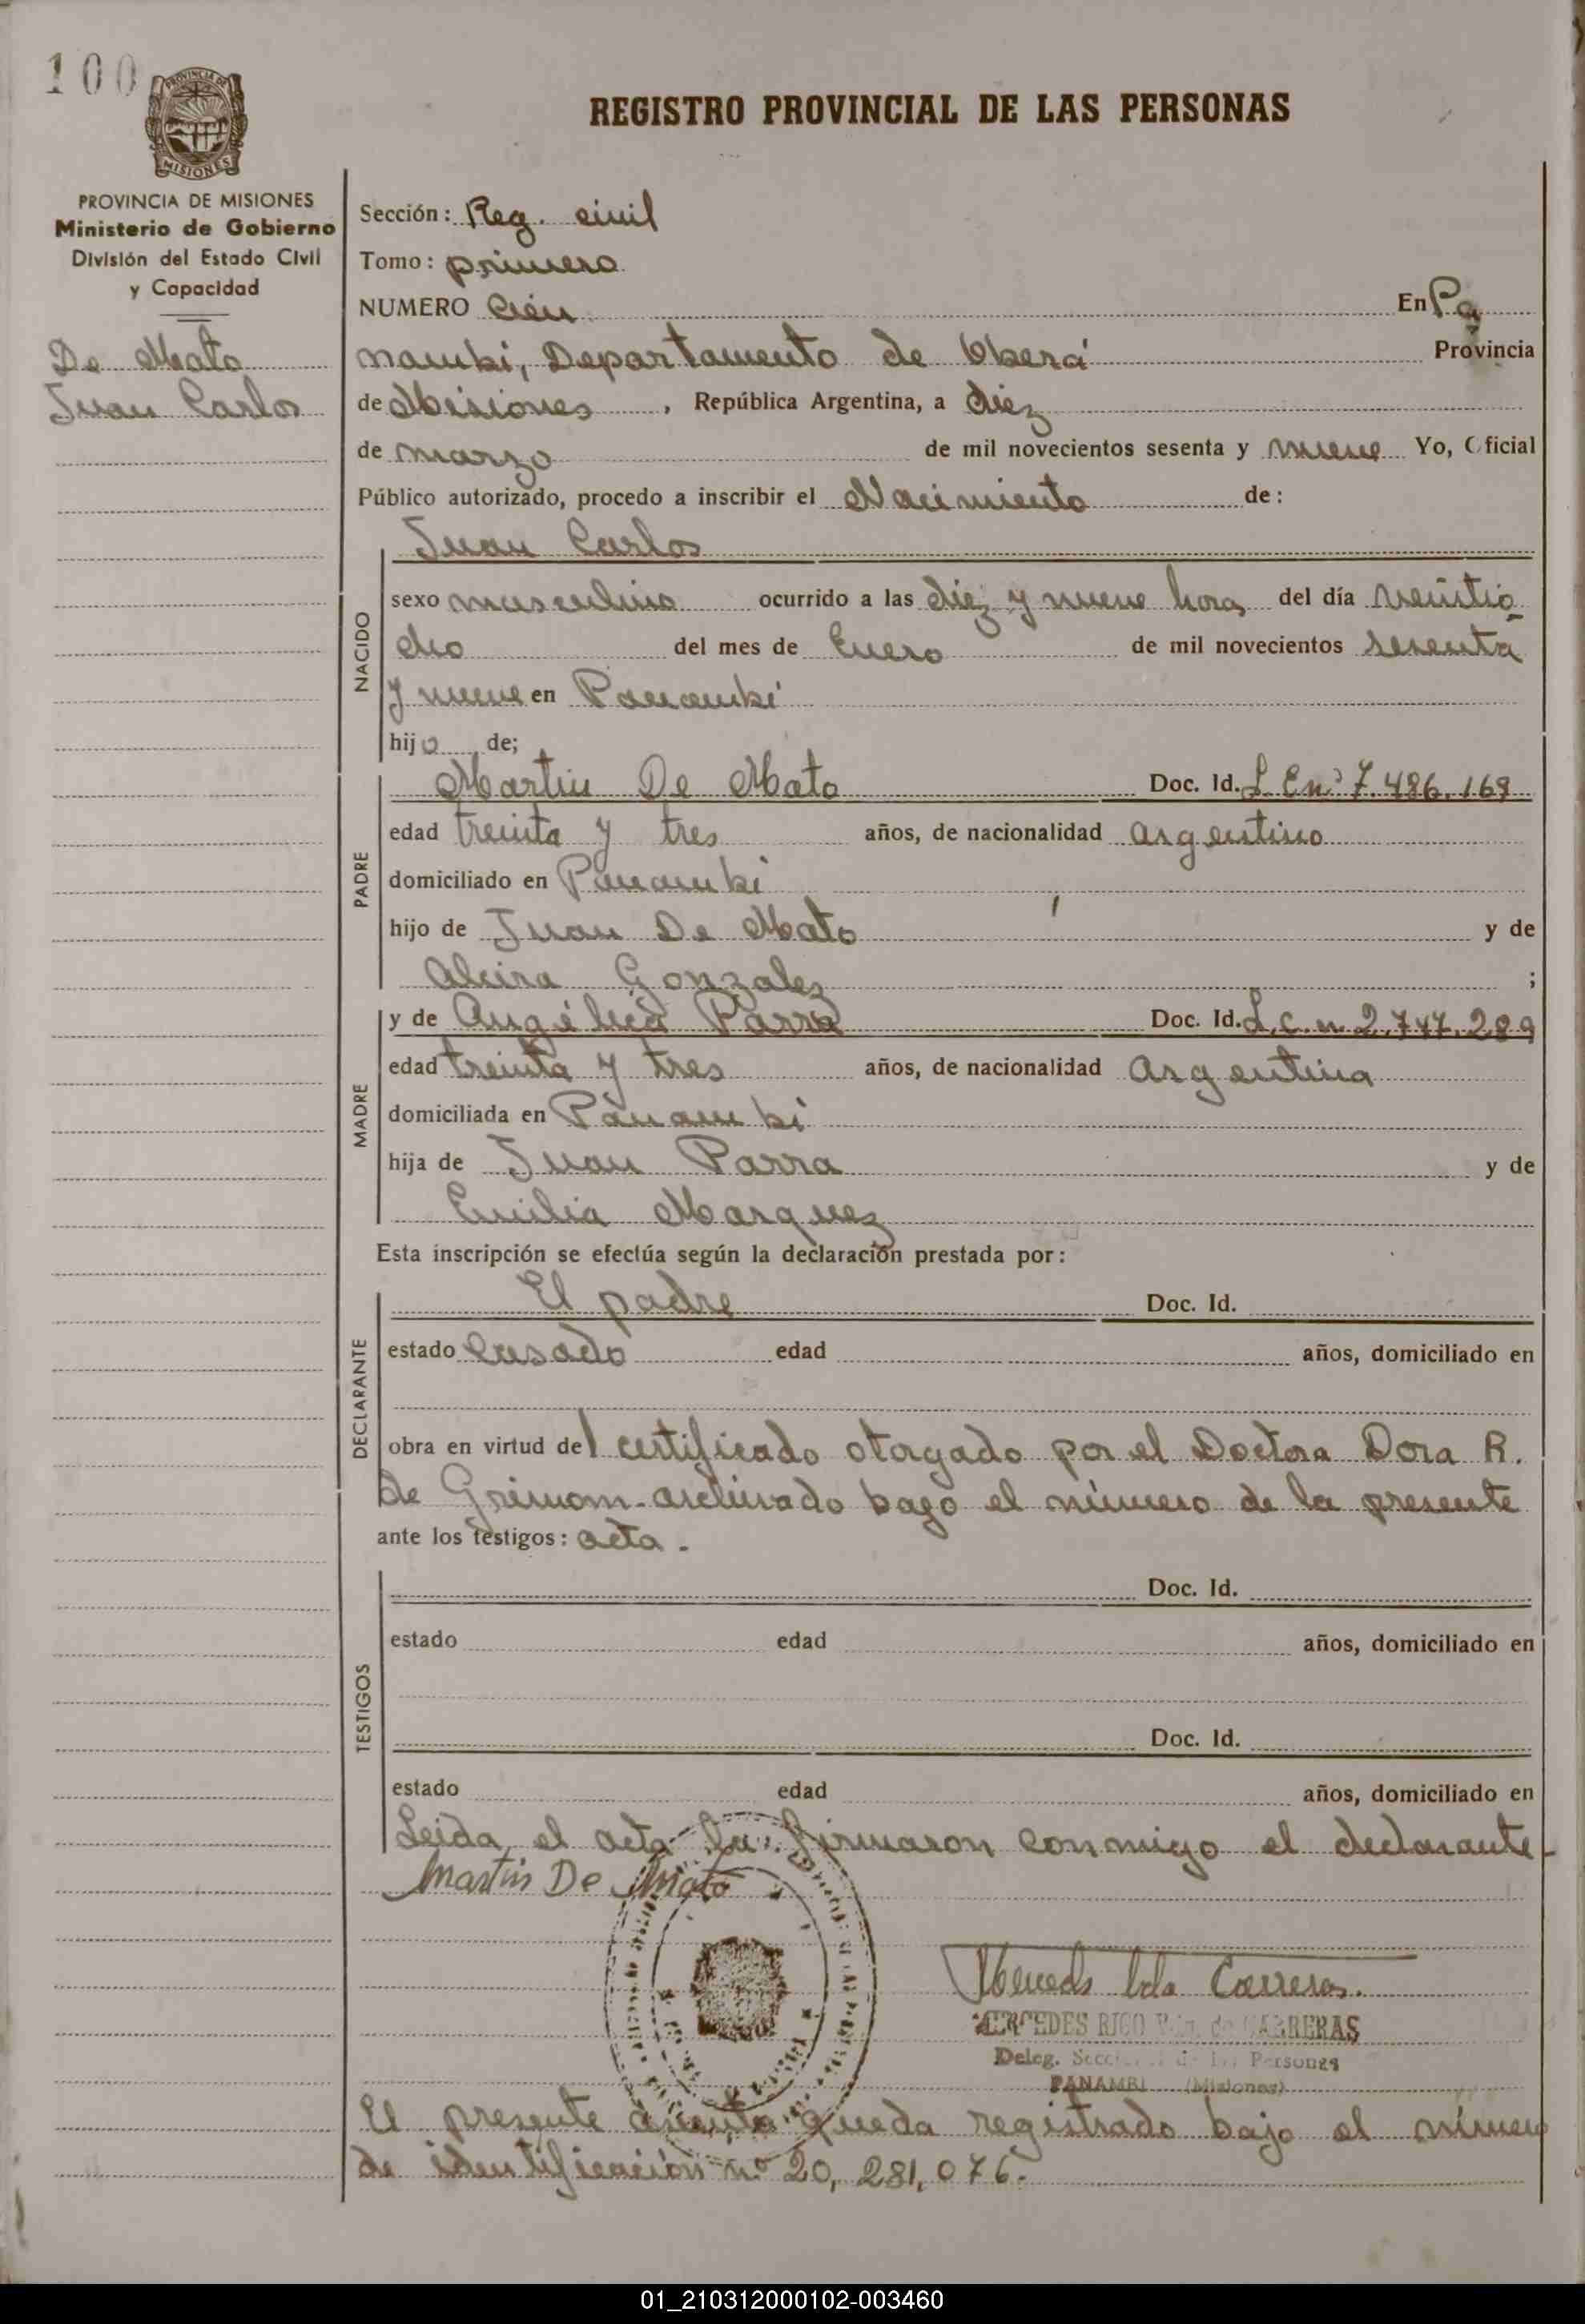 100
PROVINCIA DE
MISIONES
REGISTRO PROVINCIAL DE LAS PERSONAS
PROVINCIA DE MISIONES
Ministerio de Gobierno
División del Estado Civil
y Capacidad
De Mato
Juan Carlos
Sección: Reg. civil
Tomo: primero
NUMERO Cién En Pa
nambí, Departamento de Oberá Provincia
de Misiones, República Argentina, a diez
de marzo de mil novecientos sesenta y nueve Yo, Oficial
Público autorizado, procedo a inscribir el Nacimiento de:
Juan Carlos
NACIDO
sexo masculino ocurrido a las diez y nueve hora del día veintio
cho del mes de Enero de mil novecientos sesenta
y nueve en Panambí
hijo de;
PADRE
Martin De Mato Doc. Id. L En° 7.486.168
edad treinta y tres años, de nacionalidad argentino
domiciliado en Panambi
hijo de Juan De Mato y de
Alcira Gonzalez ;
MADRE
y de Angélica Parra Doc. Id. L.C.n 2.747.289
edad treinta y tres años, de nacionalidad Argentina
domiciliada en Panambi
hija de Juan Parra y de
Emilia Marquez
Esta inscripción se efectúa según la declaración prestada por:
DECLARANTE
El padre Doc. Id.
estado Casado edad años, domiciliado en
obra en virtud del certificado otorgado por el Doctora Dora R.
de archivado bago el número de la presente
ante los testigos: acta.
TESTIGOS
Doc. Id.
estado edad años, domiciliado en
Doc. Id.
estado edad años, domiciliado en
Leida el acta la firmaron conmigo el declarante-
Martin De Mato
Carreras.
MERCEDES RICO de CARRERAS
Deleg. de las Personas
PANAMBI (Misiones)
El presente asiento queda registrado bajo el número
de identificación n° 20,281,076.
01_210312000102-003460